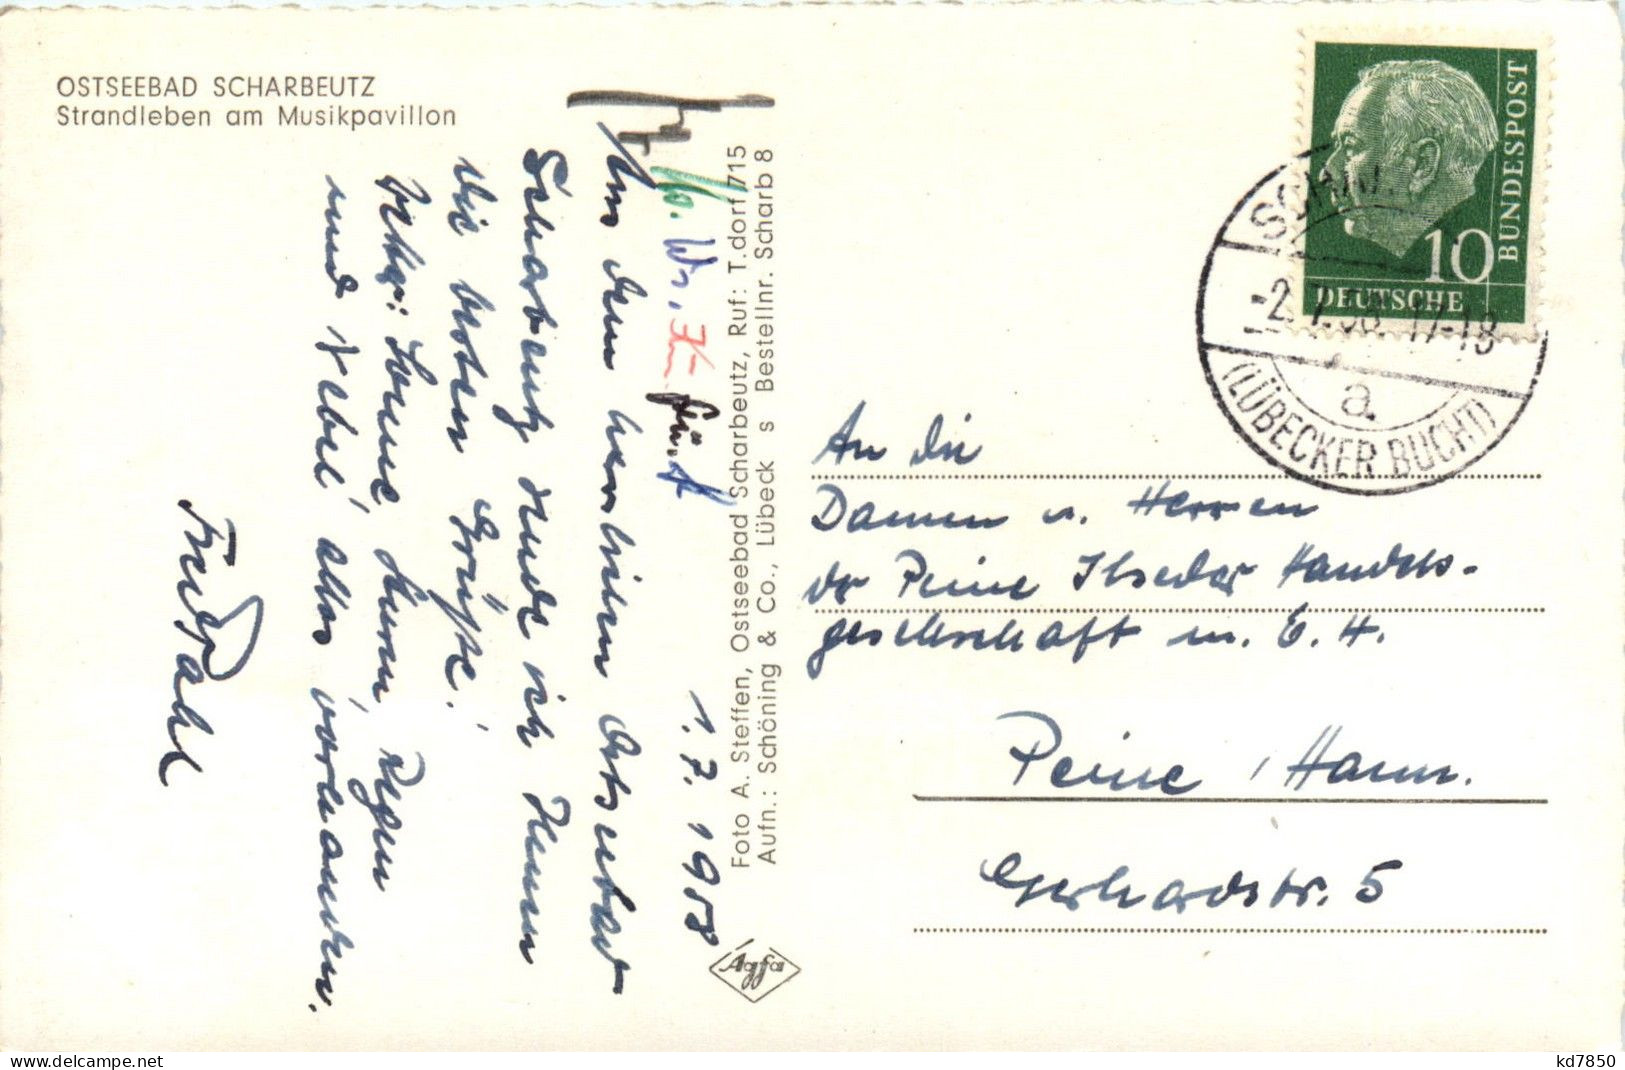 OSTSEEBAD SCHARBEUTZ
Strandleben am Musikpavillon
1.7.1958
Aus dem herrlichen Ostseebad
Scharbeutz sende ich Ihnen
die besten Grüße!
Wetter: Sonne, Sturm, Regen
und Nebel, alles vorhanden.
Foto A. Steffen, Ostseebad Scharbeutz, Ruf: T.dorf 715
Aufn.: Schöning & Co., Lübeck s Bestellnr. Scharb 8
Agfa
DEUTSCHE
BUNDESPOST
10
-2.7.58. 17-18
a
(LÜBECKER BUCHT)
An die
Damen u. Herren
der Peine Ilseder Handels-
gesellschaft m. b. H.
Peine / Hann.
Gerhardstr. 5
delcampe.net
kd7850